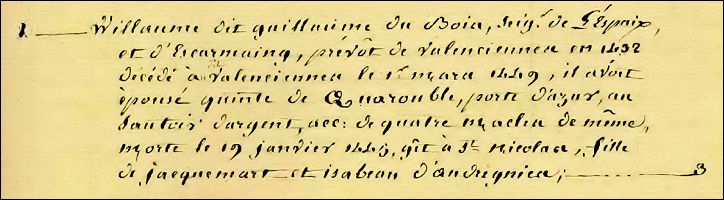 1 —— Willaume dit guillaume du Bois, seigr. de l'Espaix,
et d'Escarmaing, prévôt de valenciennes en 1432
décédé à valenciennes le 1r. mars 1449, il avoit
épousé quinte de Quarouble, porte d'azur, au
sautoir d'argent, acc: de quatre macles de même,
morte le 19 janvier 1443, gît à St. nicolas, fille
de jacquemart et isabeau d'andregnies; —— 3